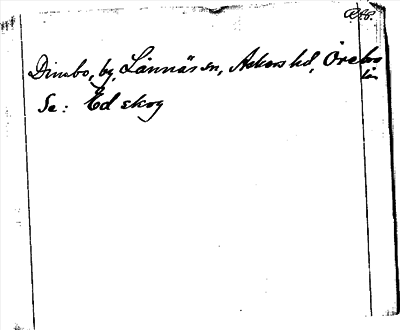 Dimbo, by, Lännäs sn, Askers hd, Örebro
län
Se: Edskog